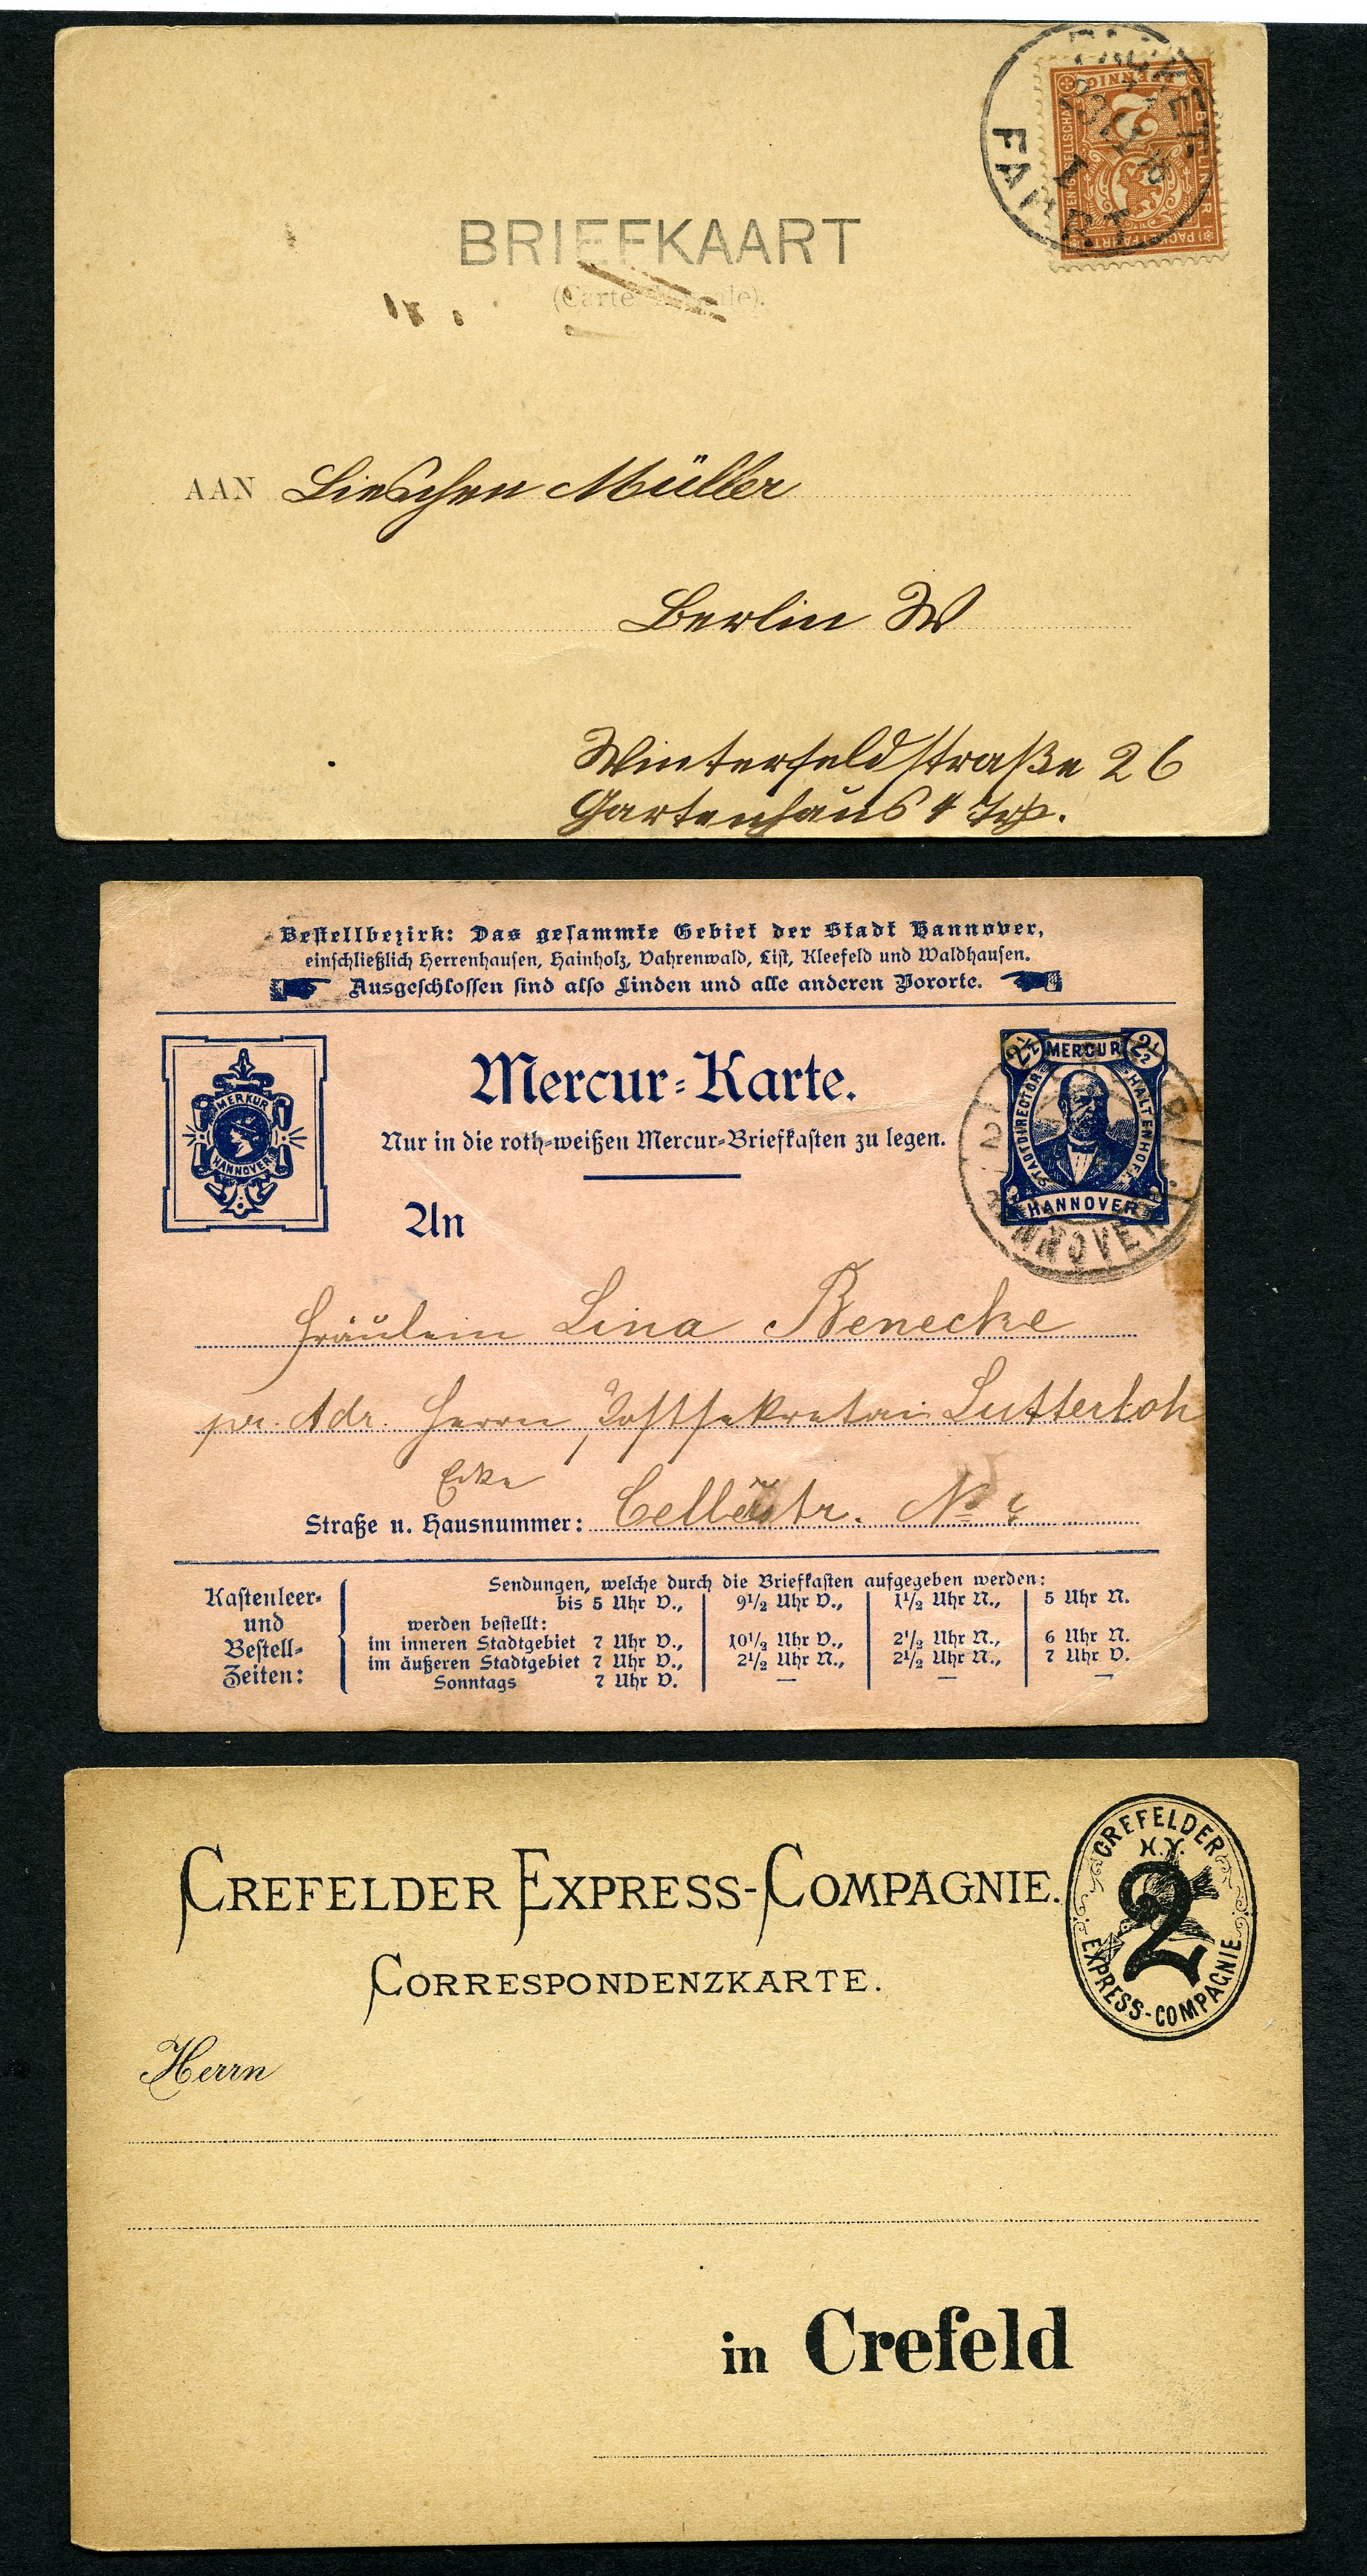 BRIEFKAART
(Carte
AAN Lieschen Müller
Berlin W
Winterfeldstraße 26
Gartenhaus 4 Trp.
PFENNIG
2
BERLINER
PACKETFAHRT
FAHRT
Bestellbezirk: Das gesammte Gebiet der Stadt Hannover,
einschließlich Herrenhausen, Hainholz, Vahrenwald, List, Kleefeld und Waldhausen.
Ausgeschlossen sind also Linden und alle anderen Vororte.
MERKUR
HANNOVER
Mercur-Karte.
Nur in die roth-weißen Mercur-Briefkasten zu legen.
2½ MERCUR 2½
STADTDIRECTOR
HALTENHOFF
HANNOVER
HANNOVER
An
Fräulein Lina Benecke
pr. Adr. Herrn Postsekretair Lutterloh
Ecke
Straße u. Hausnummer: Cellerstr. No
Kastenleer-
und
Bestell-
Zeiten:
Sendungen, welche durch die Briefkasten aufgegeben werden:
bis 5 Uhr V., 9½ Uhr V., 1½ Uhr N., 5 Uhr N.
werden bestellt:
im inneren Stadtgebiet 7 Uhr V., 10½ Uhr V., 2½ Uhr N., 6 Uhr N.
im äußeren Stadtgebiet 7 Uhr V., 2½ Uhr N., 2½ Uhr N., 7 Uhr V.
Sonntags 7 Uhr V. — — —
CREFELDER EXPRESS-COMPAGNIE.
CORRESPONDENZKARTE.
CREFELDER
H.V.
2
EXPRESS-COMPAGNIE
Herrn
in Crefeld